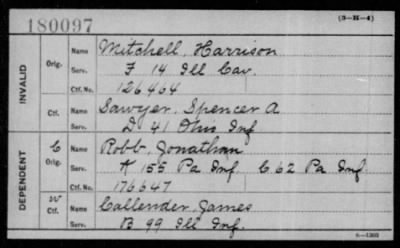 180097
(3—H—4)
INVALID
Orig.
Name Mitchell, Harrison
Serv. F 14 Ill Cav.
Ctf. No. 126464
Ctf.
Name Sawyer, Spencer A
Serv. D 41 Ohio Inf
DEPENDENT
C
Orig.
Name Robb, Jonathan
Serv. K 155 Pa Inf. C. 62 Pa Inf.
Ctf. No. 176647
W
Ctf.
Name Callender, James
Serv. B 99 Ill Inf.
6—1302